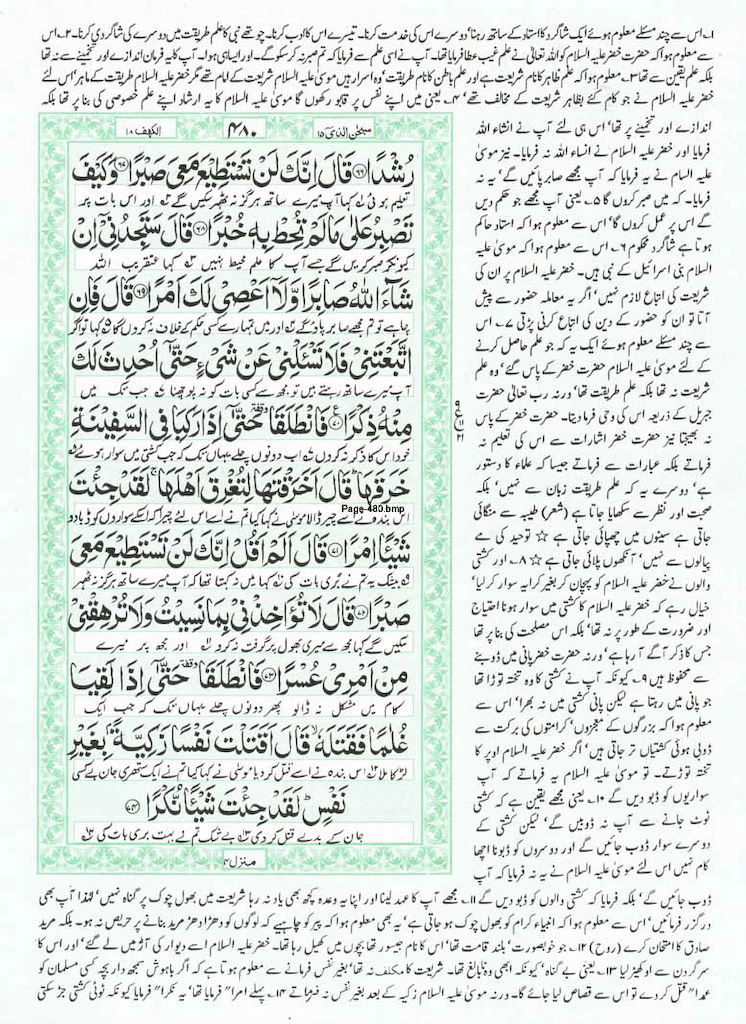 ۱۔ اس سے چند مسئلے معلوم ہوئے ایک شاگرد کا استاد کے ساتھ رہنا' دوسرے اس کی خدمت کرنا۔ تیسرے اس کا ادب کرنا۔ چوتھے نبی کا علم طریقت میں دوسرے کی شاگردی کرنا۔ ۲۔ اس
سے معلوم ہوا کہ حضرت خضر علیہ السلام کو اللہ تعالیٰ نے علم غیب عطا فرمایا تھا۔ آپ نے اسی علم سے فرمایا کہ تم صبر نہ کر سکو گے۔ اور ایسا ہی ہوا۔ آپ کا یہ فرمان اندازے اور تخمینے سے نہ تھا
بلکہ علم یقین سے تھا ۳۔ معلوم ہوا کہ علم ظاہر کا نام شریعت ہے اور علم باطن کا نام طریقت' وہ اسرار ہیں موسیٰ علیہ السلام شریعت کے امام تھے مگر خضر علیہ السلام طریقت کے ماہر' اس لئے
خضر علیہ السلام نے جو کام کئے بظاہر شریعت کے مخالف تھے' ۴۔ یعنی میں اپنے نفس پر قابو رکھوں گا موسیٰ علیہ السلام کا یہ ارشاد اپنے علم خصوصی کی بنا پر تھا بلکہ
سبحٰن الذی ۱۵
۴۸۰
الکہف ۱۸
رُشْدًا ﴿۶۶﴾ قَالَ اِنَّكَ لَنْ تَسْتَطِيْعَ مَعِيَ صَبْرًا ﴿۶۷﴾ وَكَيْفَ
تعلیم ہوئی کہا آپ میرے ساتھ ہرگز نہ ٹھہر سکیں گے اور اس بات پر
تَصْبِرُ عَلٰى مَا لَمْ تُحِطْ بِهٖ خُبْرًا ﴿۶۸﴾ قَالَ سَتَجِدُنِيْۤ اِنْ
کیونکر صبر کریں گے جسے آپ کا علم محیط نہیں کہا عنقریب اللہ
شَآءَ اللّٰهُ صَابِرًا وَّلَاۤ اَعْصِيْ لَكَ اَمْرًا ﴿۶۹﴾ قَالَ فَاِنِ
چاہے تو تم مجھے صابر پاؤ گے اور میں تمہارے کسی حکم کے خلاف نہ کروں گا کہا تو اگر
اتَّبَعْتَنِيْ فَلَا تَسْـَٔلْنِيْ عَنْ شَيْءٍ حَتّٰۤى اُحْدِثَ لَكَ
آپ میرے ساتھ رہتے ہیں تو مجھ سے کسی بات کو نہ پوچھنا جب تک میں
مِنْهُ ذِكْرًا ﴿۷۰﴾ فَانْطَلَقَا حَتّٰۤى اِذَا رَكِبَا فِي السَّفِيْنَةِ
خود اس کا ذکر نہ کروں اب دونوں چلے یہاں تک کہ جب کشتی میں سوار ہوئے
خَرَقَهَا قَالَ اَخَرَقْتَهَا لِتُغْرِقَ اَهْلَهَا لَقَدْ جِئْتَ
Page 480.bmp
اس بندہ نے اسے چیر ڈالا موسیٰ نے کہا کیا تم نے اسے اس لئے چیرا کہ اسکے سواروں کو ڈبا دو
شَيْـًٔا اِمْرًا ﴿۷۱﴾ قَالَ اَلَمْ اَقُلْ اِنَّكَ لَنْ تَسْتَطِيْعَ مَعِيَ
بیشک یہ تم نے بُری بات کی کہا میں نہ کہتا تھا کہ آپ میرے ساتھ ہرگز نہ ٹھہر
صَبْرًا ﴿۷۲﴾ قَالَ لَا تُؤَاخِذْنِيْ بِمَا نَسِيْتُ وَلَا تُرْهِقْنِيْ
سکیں گے کہا مجھ سے میری بھول پر گرفت نہ کرو اور مجھ پر میرے
مِنْ اَمْرِيْ عُسْرًا ﴿۷۳﴾ فَانْطَلَقَا حَتّٰۤى اِذَا لَقِيَا
کام میں مشکل نہ ڈالو پھر دونوں چلے یہاں تک کہ جب ایک
غُلٰمًا فَقَتَلَهٗ قَالَ اَقَتَلْتَ نَفْسًا زَكِيَّةًۢ بِغَيْرِ
لڑکا ملا اس بندہ نے اسے قتل کر دیا موسیٰ نے کہا کیا تم نے ایک ستھری جان بے کسی
نَفْسٍ لَقَدْ جِئْتَ شَيْـًٔا نُّكْرًا ﴿۷۴﴾
جان کے بدلے قتل کر دی بے شک تم نے بہت بری بات کی
منزل ۴
اندازے اور تخمینے پر تھا' اس ہی لئے آپ نے انشاء اللہ
فرمایا اور خضر علیہ السلام نے انساء اللہ نہ فرمایا۔ نیز موسیٰ
علیہ السلام نے یہ فرمایا کہ آپ مجھے صابر پائیں گے' یہ نہ
فرمایا۔ کہ میں صبر کروں گا ۵۔ یعنی آپ مجھے جو حکم دیں
گے اس پر عمل کروں گا' اس سے معلوم ہوا کہ استاد حاکم
ہوتا ہے شاگرد محکوم ۶۔ اس سے معلوم ہوا کہ موسیٰ علیہ
السلام بنی اسرائیل کے نبی ہیں۔ خضر علیہ السلام پر ان کی
شریعت کی اتباع لازم نہیں' اگر یہ معاملہ حضور سے پیش
آتا تو ان کو حضور کے دین کی اتباع کرنی پڑتی ۷۔ اس
سے چند مسئلے معلوم ہوئے ایک یہ کہ جو علم حاصل کرنے
کے لئے موسیٰ علیہ السلام حضرت خضر کے پاس گئے' وہ علم
شریعت نہ تھا بلکہ علم طریقت تھا' ورنہ رب تعالیٰ حضرت
جبریل کے ذریعہ اس کی وحی فرما دیتا۔ حضرت خضر کے پاس
نہ بھیجتا نیز حضرت خضر اشارات سے اس کی تعلیم نہ
فرماتے بلکہ عبارات سے فرماتے جیسا کہ علماء کا دستور
ہے' دوسرے یہ کہ علم طریقت زبان سے نہیں' بلکہ
صحبت اور نظر سے سکھایا جاتا ہے (شعر) طیبہ سے منگائی
جاتی ہے سینوں میں چھپائی جاتی ہے ☆ توحید کی مے
پیالوں سے نہیں' آنکھوں پلائی جاتی ہے ☆ ۸۔ اور کشتی
والوں نے خضر علیہ السلام کو پہچان کر بغیر کرایہ سوار کر لیا'
خیال رہے کہ خضر علیہ السلام کا کشتی میں سوار ہونا احتیاج
اور ضرورت کے طور پر نہ تھا' بلکہ اس مصلحت کی بنا پر تھا
جس کا ذکر آگے آ رہا ہے' ورنہ حضرت خضر پانی میں ڈوبنے
سے محفوظ ہیں ۹۔ کیونکہ آپ نے کشتی کا وہ تختہ توڑا تھا
جو پانی میں رہتا ہے لیکن پانی کشتی میں نہ بھرا' اس سے
معلوم ہوا کہ بزرگوں کے معجزوں' کرامتوں کی برکت سے
ڈوبی ہوئی کشتیاں تر جاتی ہیں' اگر خضر علیہ السلام اوپر کا
تختہ توڑتے۔ تو موسیٰ علیہ السلام یہ نہ فرماتے کہ آپ
سواریوں کو ڈبو دیں گے ۱۰۔ یعنی مجھے یقین ہے کہ کشتی
ٹوٹ جانے سے آپ نہ ڈوبیں گے' لیکن کشتی کے
دوسرے سوار ڈوب جائیں گے اور دوسروں کو ڈبونا اچھا
کام نہیں اس لئے موسیٰ علیہ السلام نے یہ نہ فرمایا کہ آپ
ڈوب جائیں گے' بلکہ فرمایا کہ کشتی والوں کو ڈبو دیں گے ۱۱۔ مجھے آپ کا عہد لینا اور اپنا یہ وعدہ کچھ بھی یاد نہ رہا شریعت میں بھول چوک پر گناہ نہیں' لہٰذا آپ بھی
درگزر فرمائیں' اس سے معلوم ہوا کہ انبیاء کرام کو بھول چوک ہو جاتی ہے' یہ بھی معلوم ہوا کہ پیر کو چاہیے کہ لوگوں کو دھڑا دھڑ مرید بنانے پر حریص نہ ہو۔ بلکہ مرید
صادق کا امتحان کرے (روح) ۱۲۔ جو خوبصورت' بلند قامت تھا' اس کا نام جیسور تھا بچوں میں کھیل رہا تھا۔ خضر علیہ السلام اسے دیوار کی آڑ میں لے گئے' اور اس کا
سر گردن سے اوکھیڑ لیا ۱۳۔ یعنی بے گناہ' کیونکہ ابھی وہ نابالغ تھا۔ شریعت کا مکلف نہ تھا' بغیر نفس فرمانے سے معلوم ہوتا ہے کہ اگر باہوش سمجھ دار بچہ کسی مسلمان کو
عمداً" قتل کر دے تو اس سے قصاص لیا جائے گا۔ ورنہ موسیٰ علیہ السلام زکیہ کے بعد بغیر نفس نہ فرماتے ۱۴۔ پہلے امرا" فرمایا تھا' یہ نکرا" فرمایا کیونکہ ٹوٹی کشتی جڑ سکتی